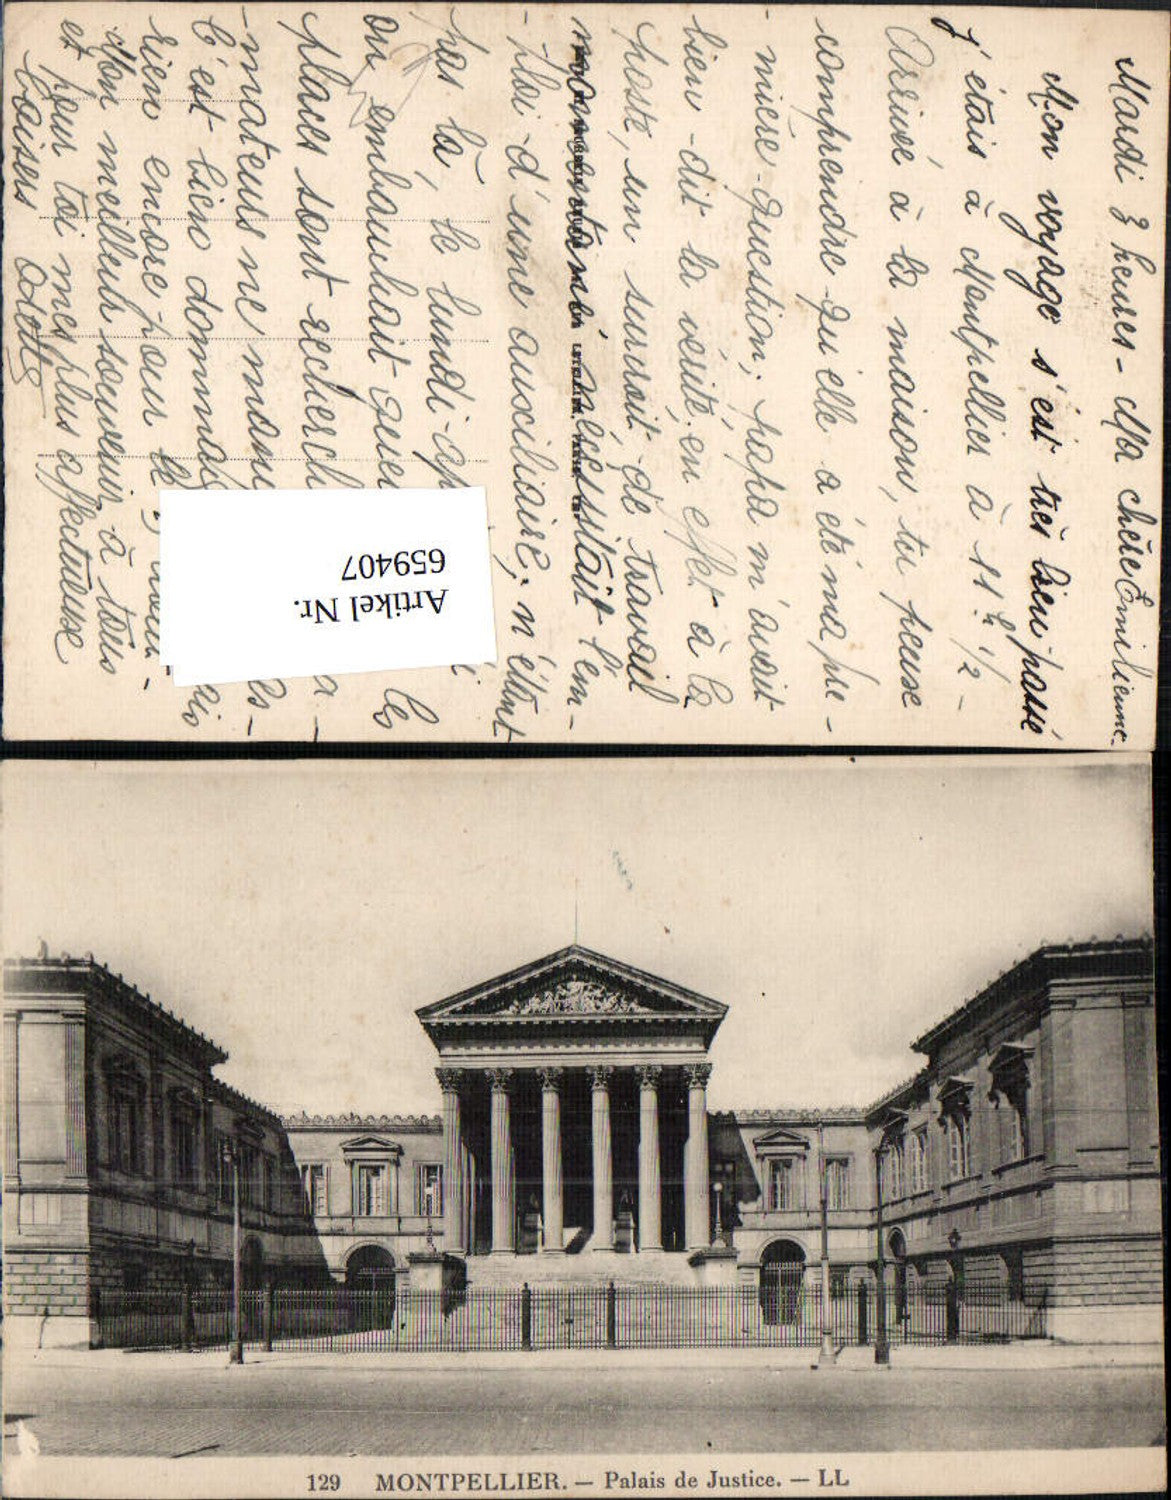 Mardi 3 heures - Ma chère Emilienne -
Mon voyage s'est très bien passé
j'étais à Montpellier à 11h 1/2 -
Arrivée à la maison, tu pense
comprendre qu'elle a été ma pre -
- mière question; papa m'avait
bien - dit la vérité, en effet à la
poste, un surcroit de travail
momentané nécessitait l'em -
- ploi - d'une auxiliaire; n'étant
pas là, le lundi -
on embauchait les
places sont
- mateurs ne
C'est bien
rien encore pour le
Mon meilleur souvenir à tous
et pour toi mes plus affectueuse
baisers Odette
LETELLIER, PARIS
Artikel Nr.
659407
129 MONTPELLIER. — Palais de Justice. — LL